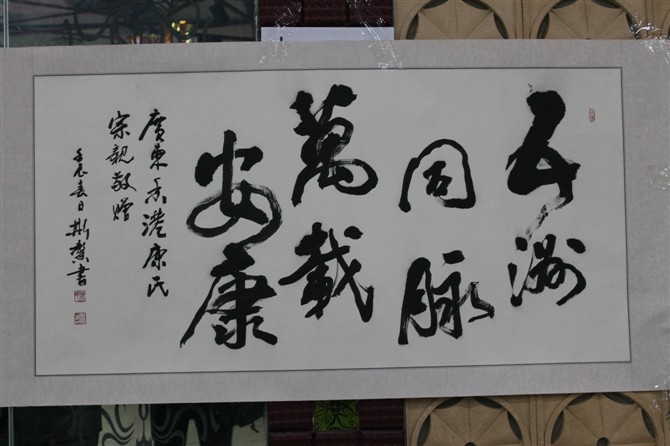 五洲
同脉
萬載
安康
廣東香港康氏
宗親敬贈
壬辰春日斯燊書